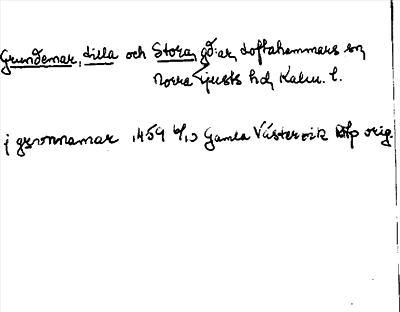 Grundemar, Lilla och Stora, gd:ar, Loftahammars sn,
Norra Tjusts hd, Kalm. l.
j grvnnamar 1459 6/10 Gamla Västervik Rap orig.